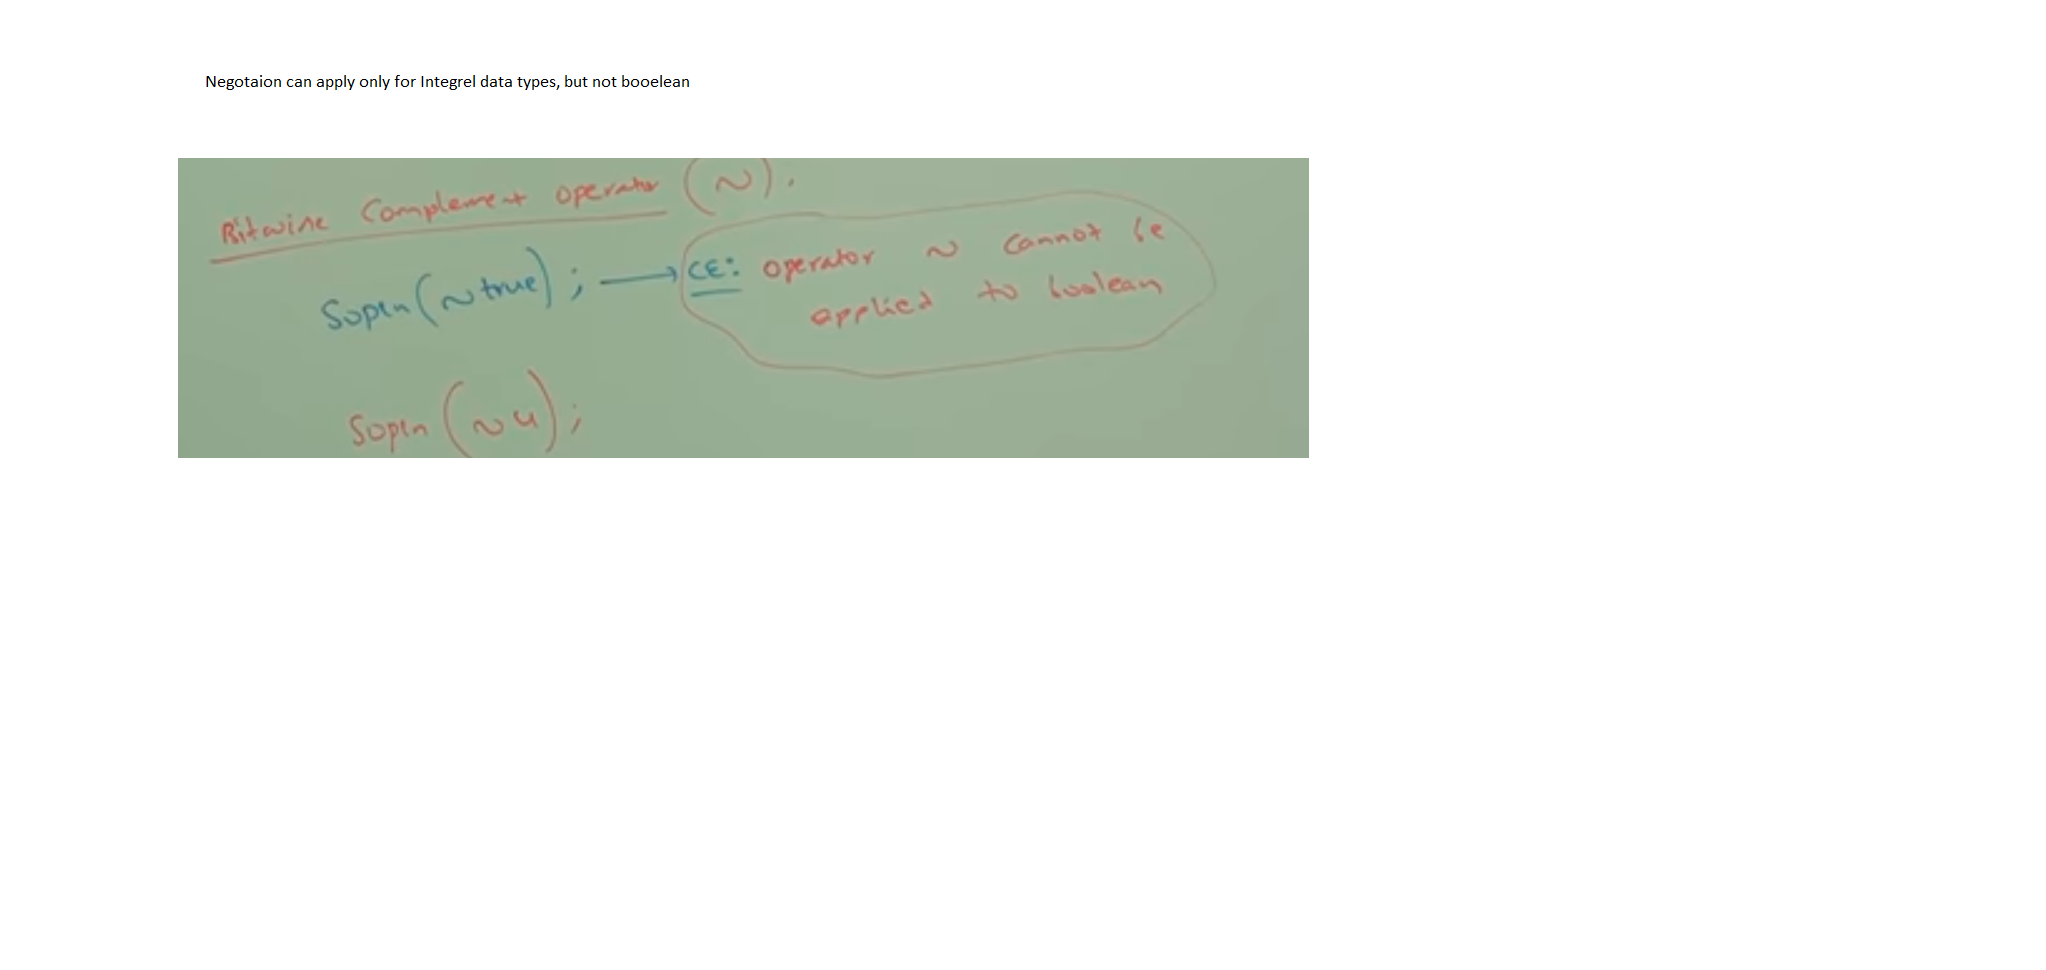 Negotaion can apply only for Integrel data types, but not booelean
Bitwise Complement operator (~).
Sopln(~true); → CE: operator ~ cannot be
applied to boolean
Sopln(~4);